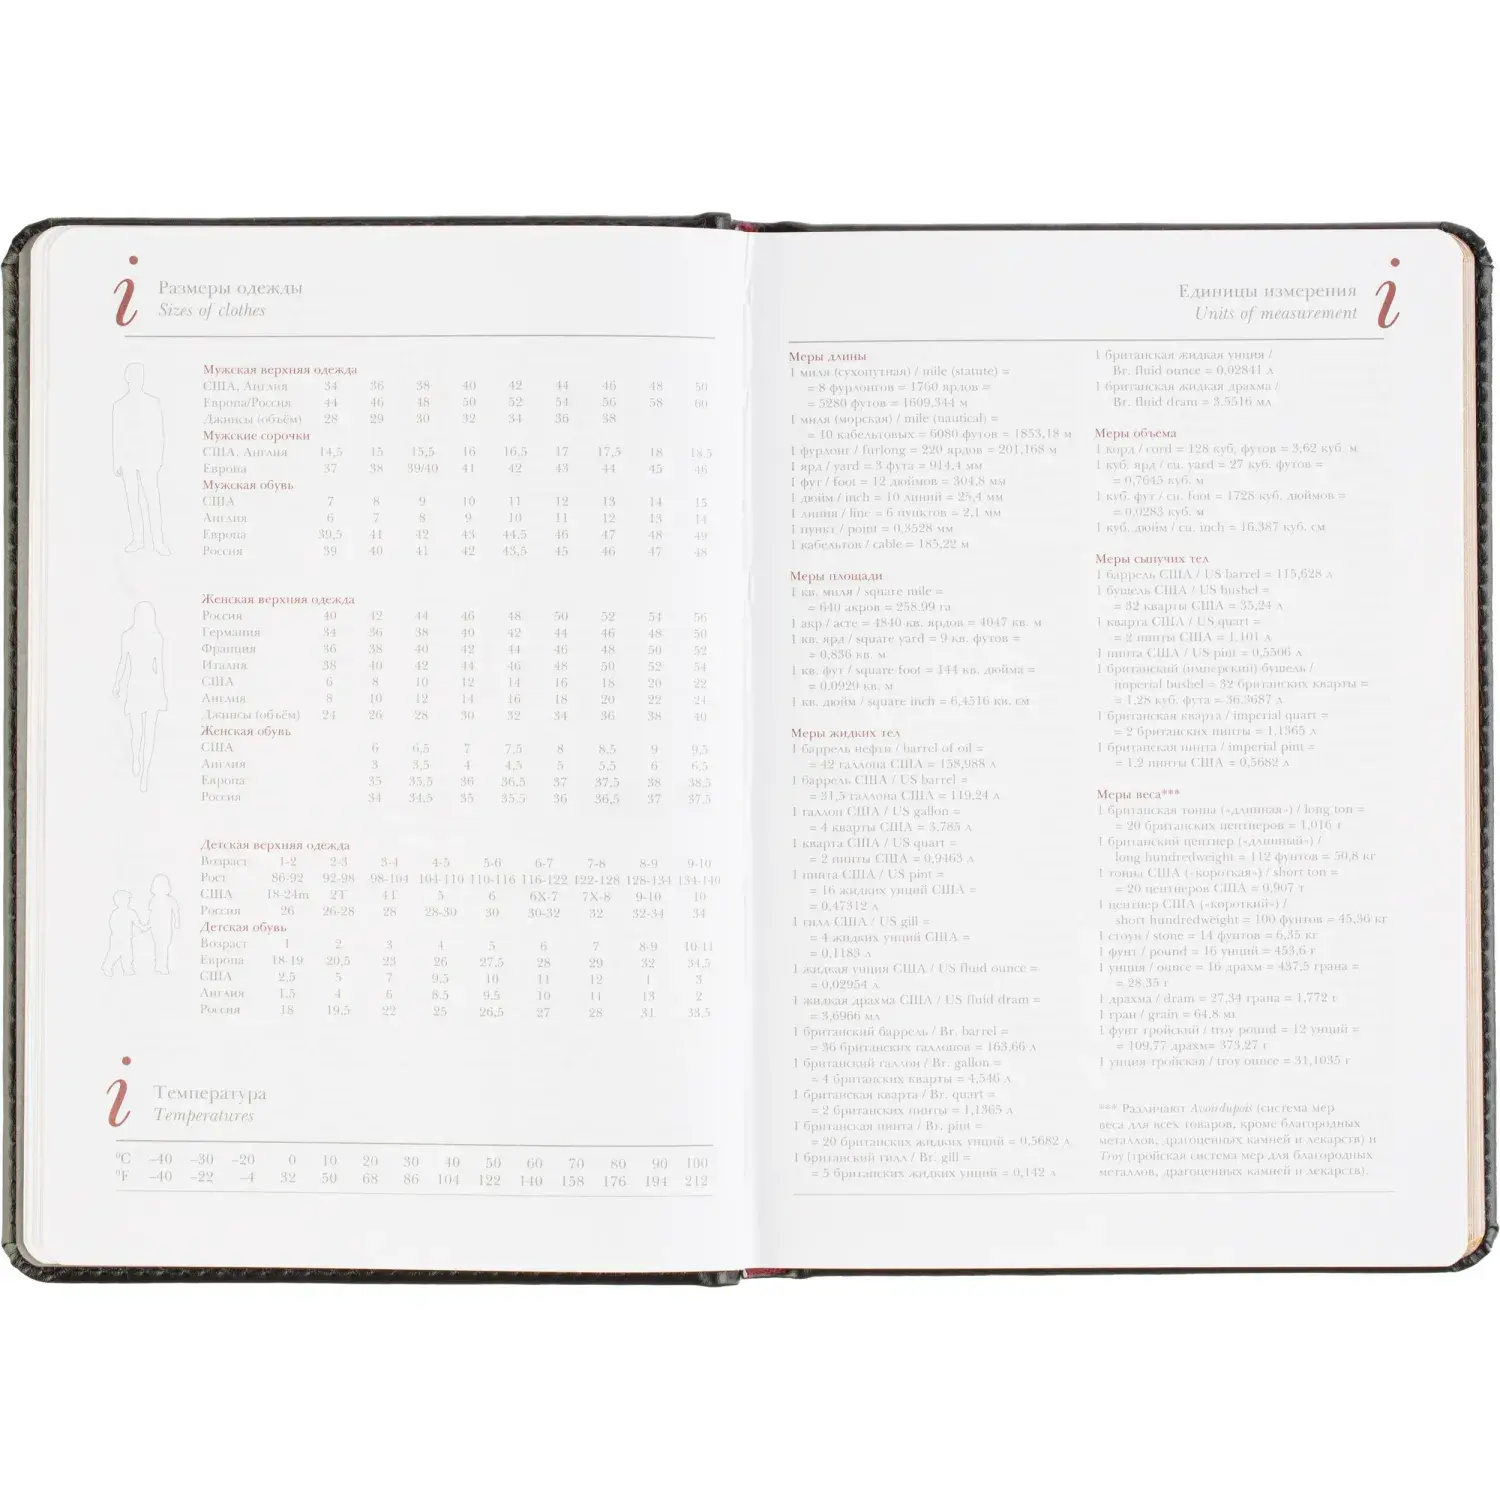 i Размеры одежды
Sizes of clothes
Мужская верхняя одежда
США, Англия 34 36 38 40 42 44 46 48 50
Европа/Россия 44 46 48 50 52 54 56 58 60
Джинсы (объём) 28 29 30 32 34 36 38
Мужские сорочки
США, Англия 14,5 15 15,5 16 16,5 17 17,5 18 18,5
Европа 37 38 39/40 41 42 43 44 45 46
Мужская обувь
США 7 8 9 10 11 12 13 14 15
Англия 6 7 8 9 10 11 12 13 14
Европа 39,5 41 42 43 44,5 46 47 48 49
Россия 39 40 41 42 43,5 45 46 47 48
Женская верхняя одежда
Россия 40 42 44 46 48 50 52 54 56
Германия 34 36 38 40 42 44 46 48 50
Франция 36 38 40 42 44 46 48 50 52
Италия 38 40 42 44 46 48 50 52 54
США 6 8 10 12 14 16 18 20 22
Англия 8 10 12 14 16 18 20 22 24
Джинсы (объём) 24 26 28 30 32 34 36 38 40
Женская обувь
США 6 6,5 7 7,5 8 8,5 9 9,5
Англия 3 3,5 4 4,5 5 5,5 6 6,5
Европа 35 35,5 36 36,5 37 37,5 38 38,5
Россия 34 34,5 35 35,5 36 36,5 37 37,5
Детская верхняя одежда
Возраст 1-2 2-3 3-4 4-5 5-6 6-7 7-8 8-9 9-10
Рост 86-92 92-98 98-104 104-110 110-116 116-122 122-128 128-134 134-140
США 18-24m 2T 4T 5 6 6X-7 7X-8 9-10 10
Россия 26 26-28 28 28-30 30 30-32 32 32-34 34
Детская обувь
Возраст 1 2 3 4 5 6 7 8-9 10-11
Европа 18-19 20,5 23 26 27,5 28 29 32 34,5
США 2,5 5 7 9,5 10 11 12 1 3
Англия 1,5 4 6 8,5 9,5 10 11 13 2
Россия 18 19,5 22 25 26,5 27 28 31 33,5
i Температура
Temperatures
°C –40 –30 –20 0 10 20 30 40 50 60 70 80 90 100
°F –40 –22 –4 32 50 68 86 104 122 140 158 176 194 212
Единицы измерения i
Units of measurement
Меры длины
1 миля (сухопутная) / mile (statute) =
= 8 фурлонгов = 1760 ярдов =
= 5280 футов = 1609,344 м
1 миля (морская) / mile (nautical) =
= 10 кабельтовых = 6080 футов = 1853,18 м
1 фурлонг / furlong = 220 ярдов = 201,168 м
1 ярд / yard = 3 фута = 914,4 мм
1 фут / foot = 12 дюймов = 304,8 мм
1 дюйм / inch = 10 линий = 25,4 мм
1 линия / line = 6 пунктов = 2,1 мм
1 пункт / point = 0,3528 мм
1 кабельтов / cable = 185,22 м
Меры площади
1 кв. миля / square mile =
= 640 акров = 258,99 га
1 акр / acre = 4840 кв. ярдов = 4047 кв. м
1 кв. ярд / square yard = 9 кв. футов =
= 0,836 кв. м
1 кв. фут / square foot = 144 кв. дюйма =
= 0,0929 кв. м
1 кв. дюйм / square inch = 6,4516 кв. см
Меры жидких тел
1 баррель нефти / barrel of oil =
= 42 галлона США = 158,988 л
1 баррель США / US barrel =
= 31,5 галлона США = 119,24 л
1 галлон США / US gallon =
= 4 кварты США = 3,785 л
1 кварта США / US quart =
= 2 пинты США = 0,9463 л
1 пинта США / US pint =
= 16 жидких унций США =
= 0,47312 л
1 гилл США / US gill =
= 4 жидких унций США =
= 0,1183 л
1 жидкая унция США / US fluid ounce =
= 0,02954 л
1 жидкая драхма США / US fluid dram =
= 3,6966 мл
1 британский баррель / Br. barrel =
= 36 британских галлонов = 163,66 л
1 британский галлон / Br. gallon =
= 4 британских кварты = 4,546 л
1 британская кварта / Br. quart =
= 2 британских пинты = 1,1365 л
1 британская пинта / Br. pint =
= 20 британских жидких унций = 0,5682 л
1 британский гилл / Br. gill =
= 5 британских жидких унций = 0,142 л
1 британская жидкая унция /
Br. fluid ounce = 0,02841 л
1 британская жидкая драхма /
Br. fluid dram = 3,5516 мл
Меры объема
1 корд / cord = 128 куб. футов = 3,62 куб. м
1 куб. ярд / cu. yard = 27 куб. футов =
= 0,7645 куб. м
1 куб. фут / cu. foot = 1728 куб. дюймов =
= 0,0283 куб. м
1 куб. дюйм / cu. inch = 16,387 куб. см
Меры сыпучих тел
1 баррель США / US barrel = 115,628 л
1 бушель США / US bushel =
= 32 кварты США = 35,24 л
1 кварта США / US quart =
= 2 пинты США = 1,101 л
1 пинта США / US pint = 0,5506 л
1 британский (имперский) бушель /
imperial bushel = 32 британских кварты =
= 1,28 куб. фута = 36,3687 л
1 британская кварта / imperial quart =
= 2 британских пинты = 1,1365 л
1 британская пинта / imperial pint =
= 1,2 пинты США = 0,5682 л
Меры веса***
1 британская тонна («длинная») / long ton =
= 20 британских центнеров = 1,016 т
1 британский центнер («длинный») /
long hundredweight = 112 фунтов = 50,8 кг
1 тонна США («короткая») / short ton =
= 20 центнеров США = 0,907 т
1 центнер США («короткий») /
short hundredweight = 100 фунтов = 45,36 кг
1 стоун / stone = 14 фунтов = 6,35 кг
1 фунт / pound = 16 унций = 453,6 г
1 унция / ounce = 16 драхм = 437,5 грана =
= 28,35 г
1 драхма / dram = 27,34 грана = 1,772 г
1 гран / grain = 64,8 мг
1 фунт тройский / troy pound = 12 унций =
= 109,77 драхм= 373,27 г
1 унция тройская / troy ounce = 31,1035 г
*** Различают Avoirdupois (система мер
веса для всех товаров, кроме благородных
металлов, драгоценных камней и лекарств) и
Troy (тройская система мер для благородных
металлов, драгоценных камней и лекарств).